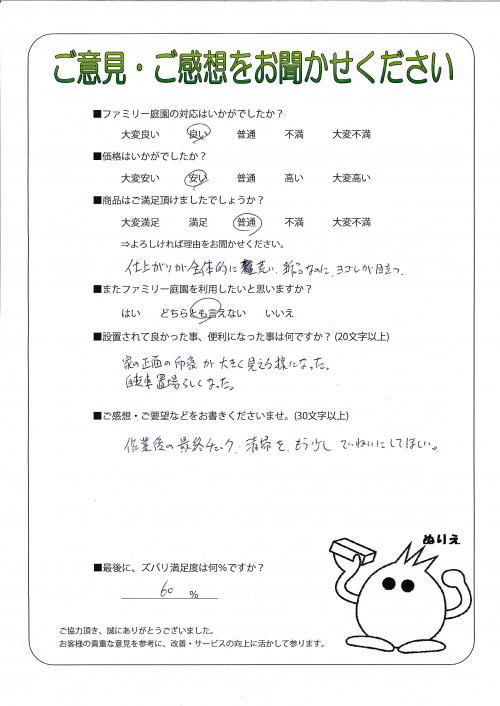 ご意見・ご感想をお聞かせください
■ファミリー庭園の対応はいかがでしたか？
大変良い 良い 普通 不満 大変不満
■価格はいかがでしたか？
大変安い 安い 普通 高い 大変高い
■商品はご満足頂けましたでしょうか？
大変満足 満足 普通 不満 大変不満
⇒よろしければ理由をお聞かせください。
仕上がりが全体的に荒い、新品なのに、ヨゴレが目立つ、
■またファミリー庭園を利用したいと思いますか？
はい どちらとも言えない いいえ
■設置されて良かった事、便利になった事は何ですか？(20文字以上)
家の正面の印象が大きく見える様になった。
自転車置場らしくなった。
■ご感想・ご要望などをお書きくださいませ。(30文字以上)
作業後の最終チェック、清掃を、もう少していねいにしてほしい。
ぬりえ
■最後に、ズバリ満足度は何％ですか？
60 %
ご協力頂き、誠にありがとうございました。
お客様の貴重な意見を参考に、改善・サービスの向上に活かして参ります。